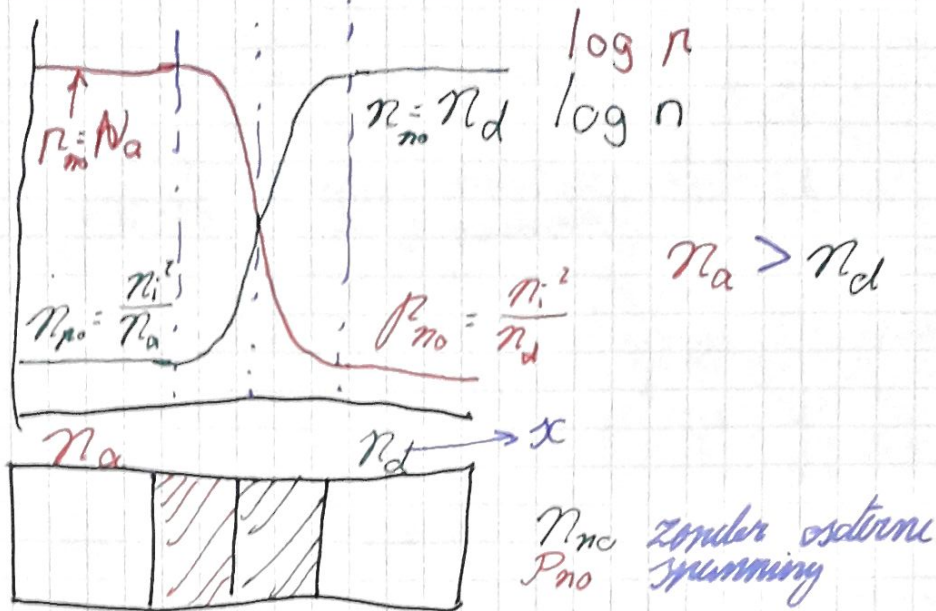 log p
log n
p_{no} = N_a
n_{no} = n_d
n_a > n_d
n_{po} = \frac{n_i^2}{n_a}
p_{no} = \frac{n_i^2}{n_d}
n_a
n_d
x
n_{no} zonder externe
p_{no} spanning